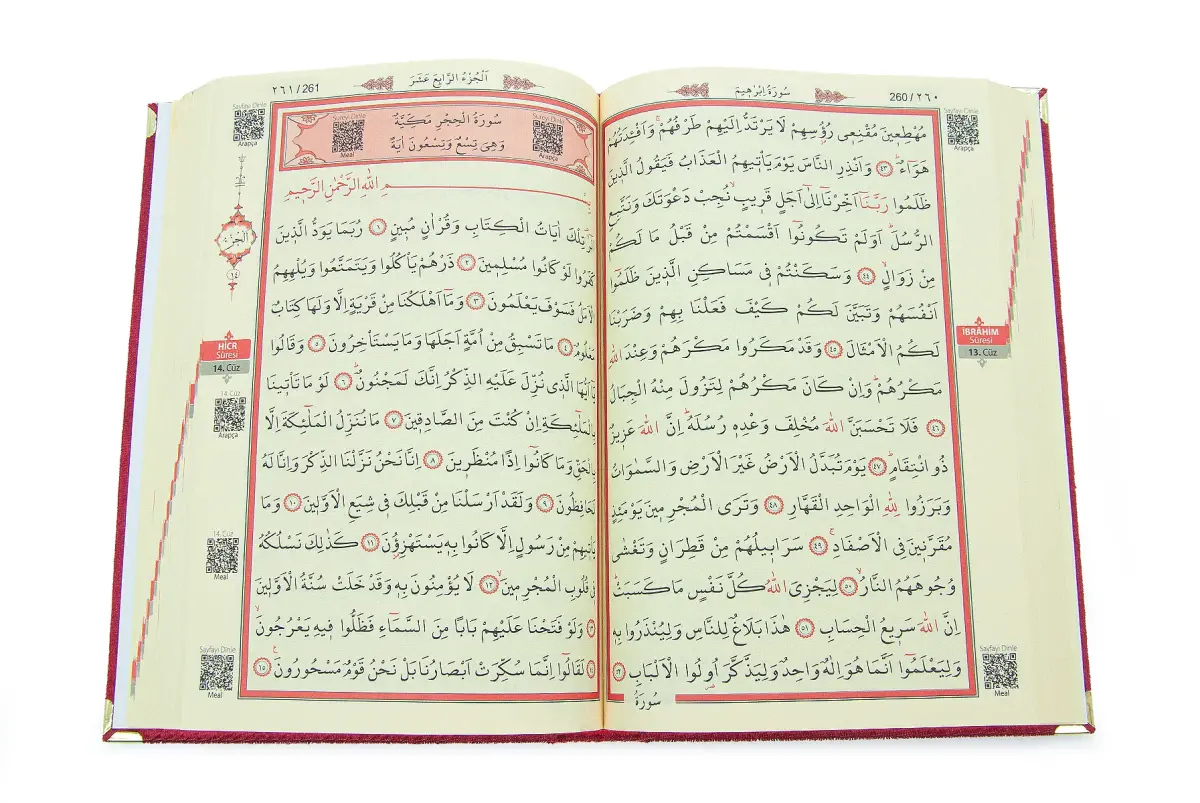 سُورَةُ اِبْرٰه۪يمَ
260/٢٦٠
Sayfayı Dinle
Arapça
مُهْطِع۪ينَ مُقْنِع۪ي رُؤُسِهِمْ لَا يَرْتَدُّ اِلَيْهِمْ طَرْفُهُمْۚ وَاَفْـِٔدَتُهُمْ
هَوَٓاءٌۜ ﴿٤٣﴾ وَاَنْذِرِ النَّاسَ يَوْمَ يَأْت۪يهِمُ الْعَذَابُ فَيَقُولُ الَّذ۪ينَ
ظَلَمُوا رَبَّنَٓا اَخِّرْنَٓا اِلٰٓى اَجَلٍ قَر۪يبٍۙ نُجِبْ دَعْوَتَكَ وَنَتَّبِعِ
الرُّسُلَۜ اَوَلَمْ تَكُونُٓوا اَقْسَمْتُمْ مِنْ قَبْلُ مَا لَكُمْ
مِنْ زَوَالٍۙ ﴿٤٤﴾ وَسَكَنْتُمْ ف۪ي مَسَاكِنِ الَّذ۪ينَ ظَلَمُٓوا
اَنْفُسَهُمْ وَتَبَيَّنَ لَكُمْ كَيْفَ فَعَلْنَا بِهِمْ وَضَرَبْنَا
لَكُمُ الْاَمْثَالَ ﴿٤٥﴾ وَقَدْ مَكَرُوا مَكْرَهُمْ وَعِنْدَ اللّٰهِ
مَكْرُهُمْۜ وَاِنْ كَانَ مَكْرُهُمْ لِتَزُولَ مِنْهُ الْجِبَالُ
﴿٤٦﴾ فَلَا تَحْسَبَنَّ اللّٰهَ مُخْلِفَ وَعْدِه۪ رُسُلَهُۜ اِنَّ اللّٰهَ عَز۪يزٌ
ذُو انْتِقَامٍۜ ﴿٤٧﴾ يَوْمَ تُبَدَّلُ الْاَرْضُ غَيْرَ الْاَرْضِ وَالسَّمٰوَاتُ
وَبَرَزُوا لِلّٰهِ الْوَاحِدِ الْقَهَّارِ ﴿٤٨﴾ وَتَرَى الْمُجْرِم۪ينَ يَوْمَئِذٍ
مُقَرَّن۪ينَ فِي الْاَصْفَادِۚ ﴿٤٩﴾ سَرَاب۪يلُهُمْ مِنْ قَطِرَانٍ وَتَغْشٰى
وُجُوهَهُمُ النَّارُۙ ﴿٥٠﴾ لِيَجْزِيَ اللّٰهُ كُلَّ نَفْسٍ مَا كَسَبَتْۜ
اِنَّ اللّٰهَ سَر۪يعُ الْحِسَابِ ﴿٥١﴾ هٰذَا بَلَاغٌ لِلنَّاسِ وَلِيُنْذَرُوا بِه۪
وَلِيَعْلَمُٓوا اَنَّمَا هُوَ اِلٰهٌ وَاحِدٌ وَلِيَذَّكَّرَ اُو۬لُوا الْاَلْبَابِ ﴿٥٢﴾
سُورَةُ
İBRÂHİM
Sûresi
13. Cüz
Sayfayı Dinle
Meal
٢٦١/261
اَلْجُزْءُ الرَّابِعُ عَشَرَ
Sayfayı Dinle
Arapça
Sureyi Dinle
Meal
سُورَةُ الْحِجْرِ مَكِّيَّةٌ
وَهِيَ تِسْعٌ وَتِسْعُونَ اٰيَةً
Sureyi Dinle
Arapça
اللّٰهِ الرَّحْمٰنِ الرَّح۪يمِ
تِلْكَ اٰيَاتُ الْكِتَابِ وَقُرْاٰنٍ مُب۪ينٍ ﴿١﴾ رُبَمَا يَوَدُّ الَّذ۪ينَ
كَفَرُوا لَوْ كَانُوا مُسْلِم۪ينَ ﴿٢﴾ ذَرْهُمْ يَأْكُلُوا وَيَتَمَتَّعُوا وَيُلْهِهِمُ
الْاَمَلُ فَسَوْفَ يَعْلَمُونَ ﴿٣﴾ وَمَٓا اَهْلَكْنَا مِنْ قَرْيَةٍ اِلَّا وَلَهَا كِتَابٌ
مَعْلُومٌ ﴿٤﴾ مَا تَسْبِقُ مِنْ اُمَّةٍ اَجَلَهَا وَمَا يَسْتَأْخِرُونَ ﴿٥﴾ وَقَالُوا
يَٓا اَيُّهَا الَّذ۪ي نُزِّلَ عَلَيْهِ الذِّكْرُ اِنَّكَ لَمَجْنُونٌۜ ﴿٦﴾ لَوْ مَا تَأْت۪ينَا
بِالْمَلٰٓئِكَةِ اِنْ كُنْتَ مِنَ الصَّادِق۪ينَ ﴿٧﴾ مَا نُنَزِّلُ الْمَلٰٓئِكَةَ اِلَّا
بِالْحَقِّ وَمَا كَانُٓوا اِذًا مُنْظَر۪ينَ ﴿٨﴾ اِنَّا نَحْنُ نَزَّلْنَا الذِّكْرَ وَاِنَّا لَهُ
لَحَافِظُونَ ﴿٩﴾ وَلَقَدْ اَرْسَلْنَا مِنْ قَبْلِكَ ف۪ي شِيَعِ الْاَوَّل۪ينَ ﴿١٠﴾ وَمَا
يَأْت۪يهِمْ مِنْ رَسُولٍ اِلَّا كَانُوا بِه۪ يَسْتَهْزِؤُ۫نَ ﴿١١﴾ كَذٰلِكَ نَسْلُكُهُ
ف۪ي قُلُوبِ الْمُجْرِم۪ينَۙ ﴿١٢﴾ لَا يُؤْمِنُونَ بِه۪ وَقَدْ خَلَتْ سُنَّةُ الْاَوَّل۪ينَ
﴿١٣﴾ وَلَوْ فَتَحْنَا عَلَيْهِمْ بَابًا مِنَ السَّمَٓاءِ فَظَلُّوا ف۪يهِ يَعْرُجُونَۙ
﴿١٤﴾ لَقَالُٓوا اِنَّمَا سُكِّرَتْ اَبْصَارُنَا بَلْ نَحْنُ قَوْمٌ مَسْحُورُونَ۟ ﴿١٥﴾
اَلْجُزْءُ
١٤
HİCR
Sûresi
14. Cüz
14. Cüz
Arapça
14. Cüz
Meal
Sayfayı Dinle
Meal